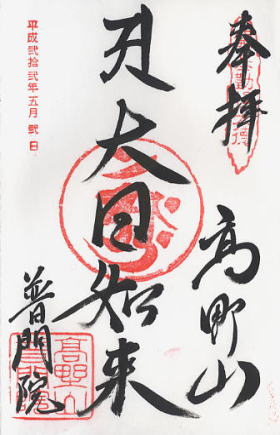 奉拝
高野山
大日如来
普門院
平成弐拾弐年五月弐日